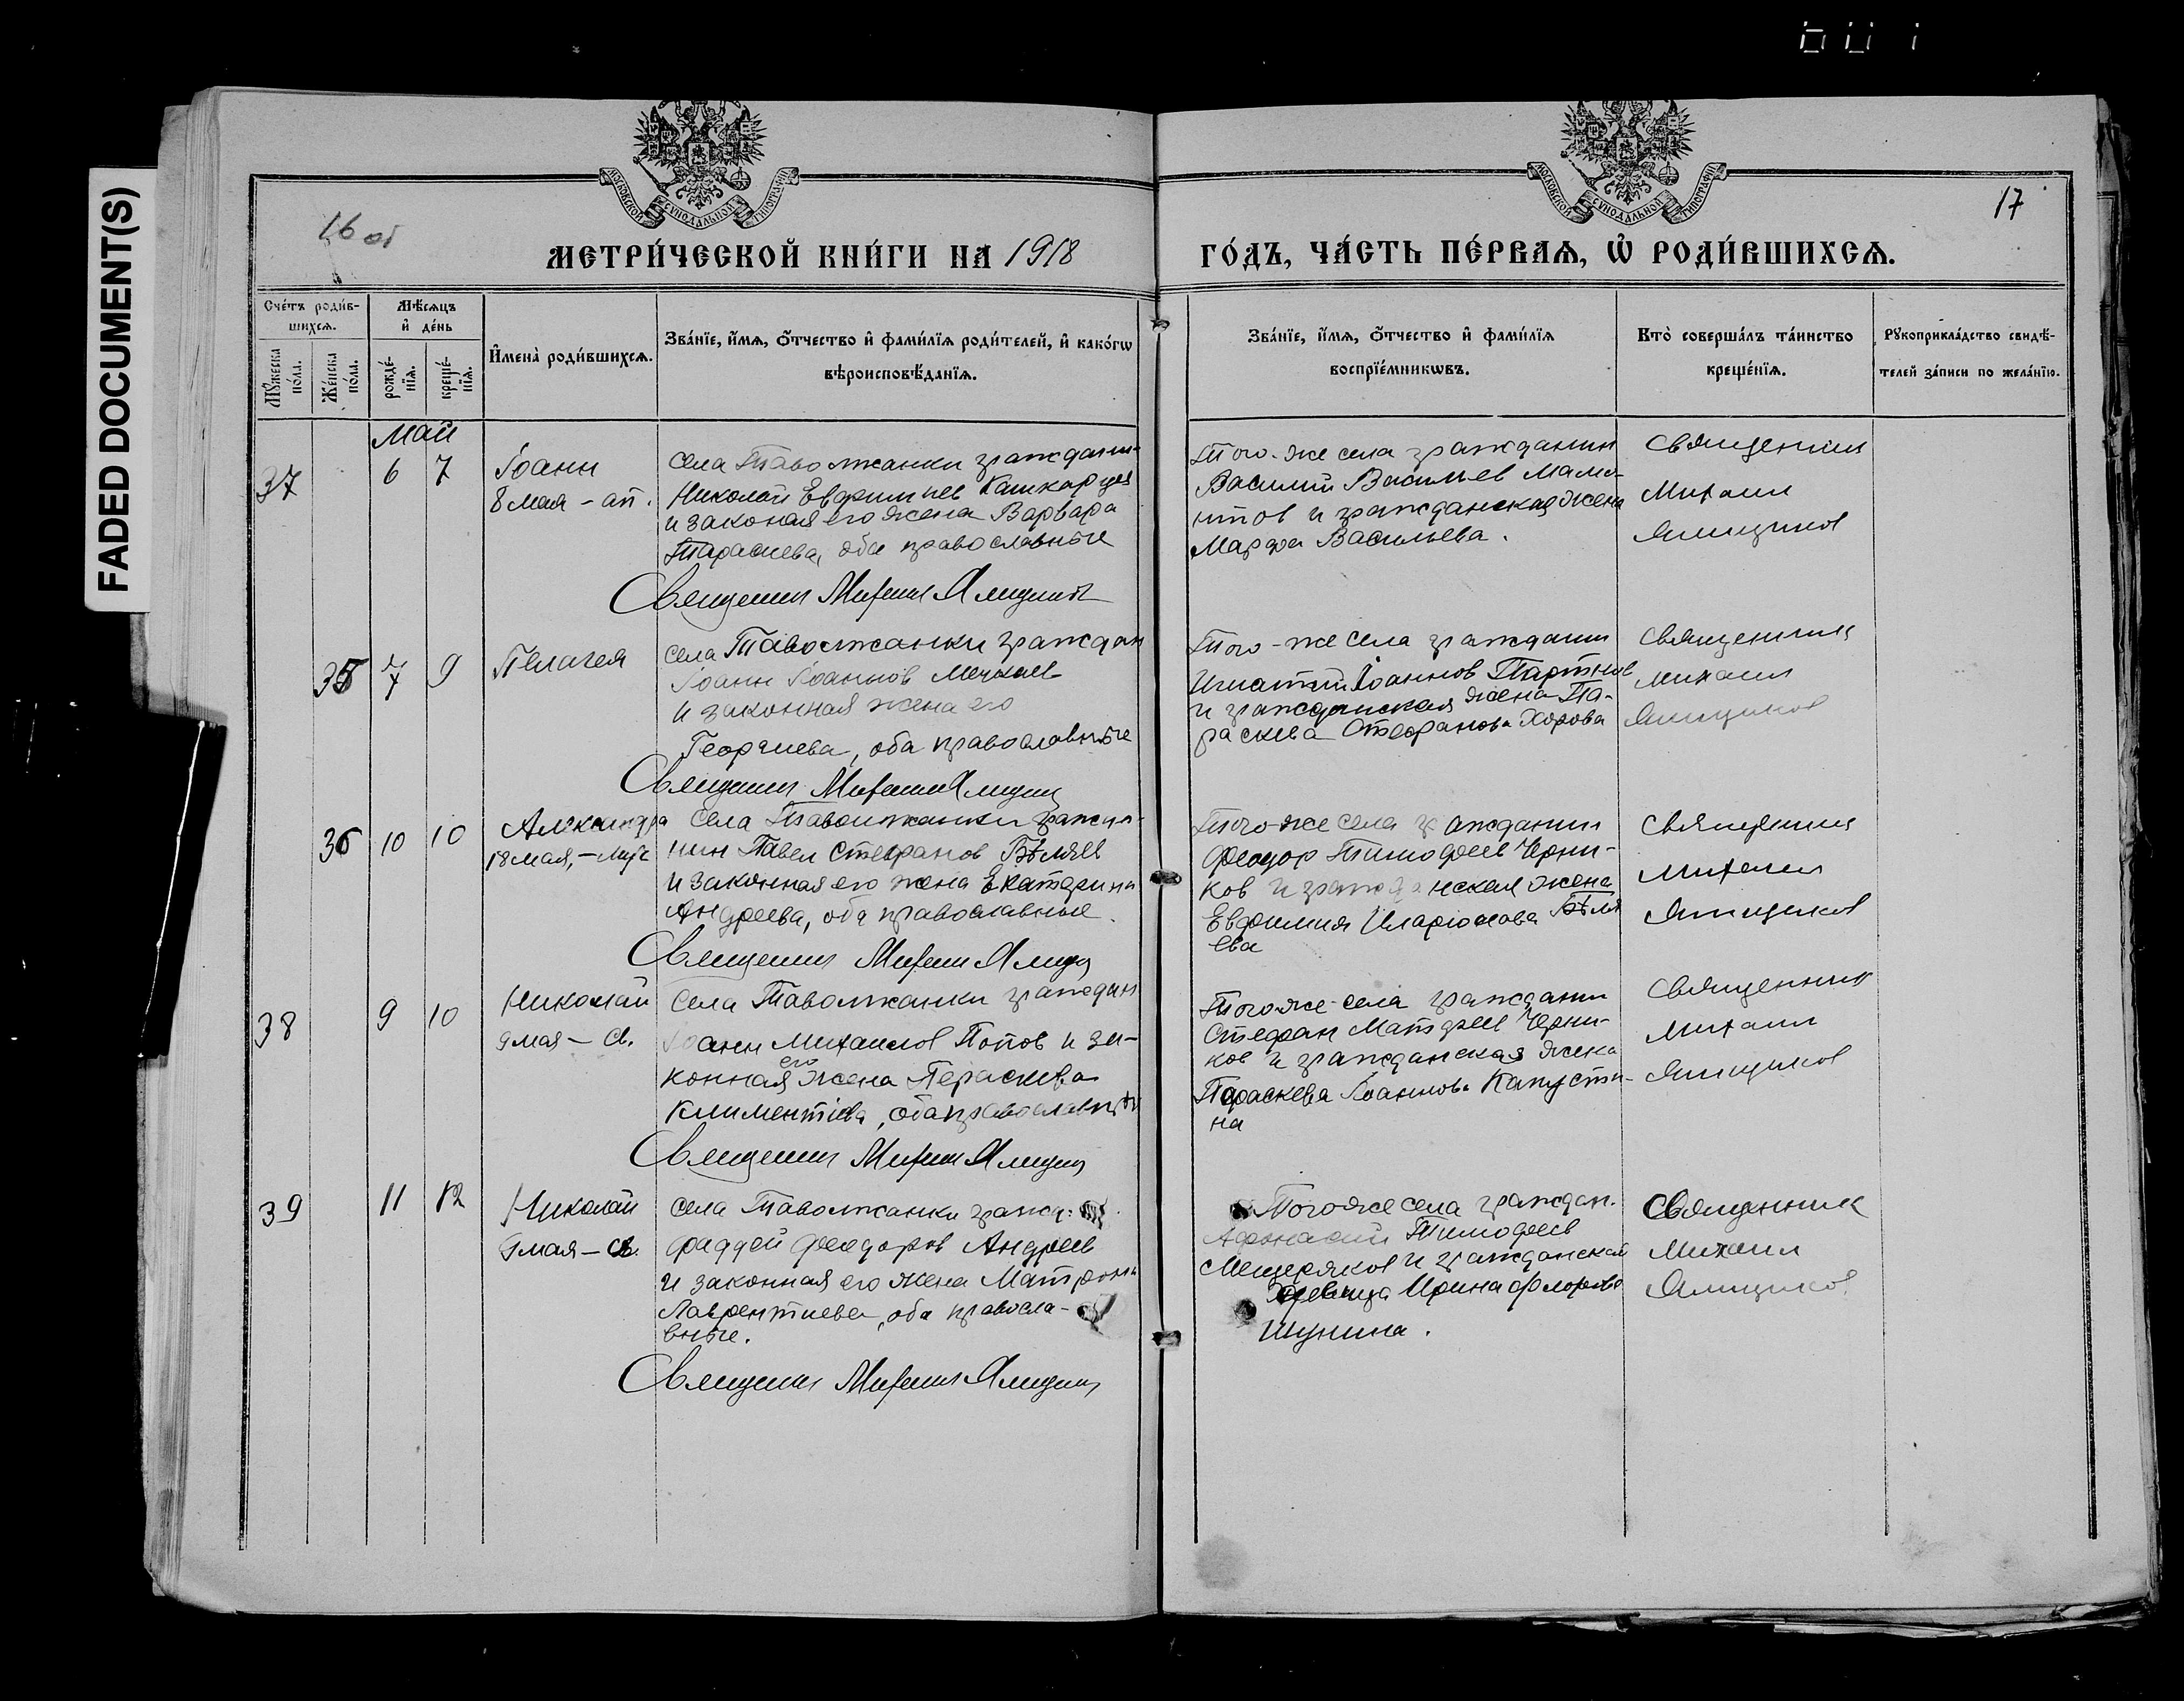 FADED DOCUMENT(S)
16 об
17
МОСКОВСКОЙ СѴНОДАЛЬНОЙ ТИПОГРАФІИ
МОСКОВСКОЙ СѴНОДАЛЬНОЙ ТИПОГРАФІИ
МЕТРИ́ЧЕСКОЙ КНИ́ГИ НА 1918
ГО́ДЪ, ЧА́СТЬ ПЕ́РВАѦ, Ѽ РОДИ́ВШИХСѦ.
Сче́тъ роди́в-
шихсѧ.
Мꙋ́жеска по́ла.
Же́нска по́ла.
Мѣ́сѧцъ
и҆ де́нь
рожде́-
нїѧ.
креще́-
нїѧ.
И҆мена̀ роди́вшихсѧ.
Зва́нїе, и҆́мѧ, ѻ҆́тчество и҆ фамилїѧ роди́телей, и҆ како́гѡ
вѣроисповѣ́данїѧ.
Зва́нїе, и҆́мѧ, ѻ҆́тчество и҆ фами́лїѧ
воспрїе́мникѡвъ.
Кто̀ соверша́лъ та́инство
креще́нїѧ.
Рꙋкоприкла́дство свидѣ́-
телей за́писи по жела́нїю.
Май
37 6 7 Іоанн
8 мая – ап.
села Таволжанки граждан-
Николай Евфимиев Кашкарцев
и законая его жена Варвара
Тарасиева, оба православные
Священник Михаил Ямщиков
Того-же села гражданин
Василий Васильев Мамо-
нтов и гражданская жена
Марфа Васильева.
Священник
Михаил
Ямщиков
35 7 9 Пелагея
села Таволжанки граждан
Іоанн Іоаннов
и законная жена его
Георгиева, оба православные
Священник Михаил Ямщик
Того-же села гражданин
Игнатий Іоаннов
и гражданская жена Па-
раскева Стефанова Хорова
Священник
Михаил
Ямщиков
36 10 10 Александра
18 мая, – муч
села Таволжанки гражда-
нин Павел Стефанов Бѣляев
и законная его жена Екатерина
Андреева, оба православные.
Священник Михаил Ямщик
Того-же села гражданин
Феодор Тимофеев Черни-
ков и гражданская жена
Евфимия Иларионова Бѣля
ева
Священник
Михаил
Ямщиков
38 9 10 Николай
9 мая – св.
села Таволжанки граждан
Іоанн Михаилов Попов и за-
конная его жена Пераскева
Климентиева, оба православные
Священник Михаил Ямщик
Тогоже-села гражданин
Стефан Матфеев Черни-
ков и гражданская жена
Параскева Іоаннова Капусти-
на
Священник
Михаил
Ямщиков
39 11 12 Николай
9 мая – св.
села Таволжанки гражд.
Фаддей Феодоров Андреев
и законная его жена Матрона
Лаврентиева, оба правосла-
вные.
Священник Михаил Ямщик
Тогоже села граждан.
Афонасий Тимофеев
Мещеряков и гражданская
девица Ирина Флорова
Шунина.
Священник
Михаил
Ямщиков